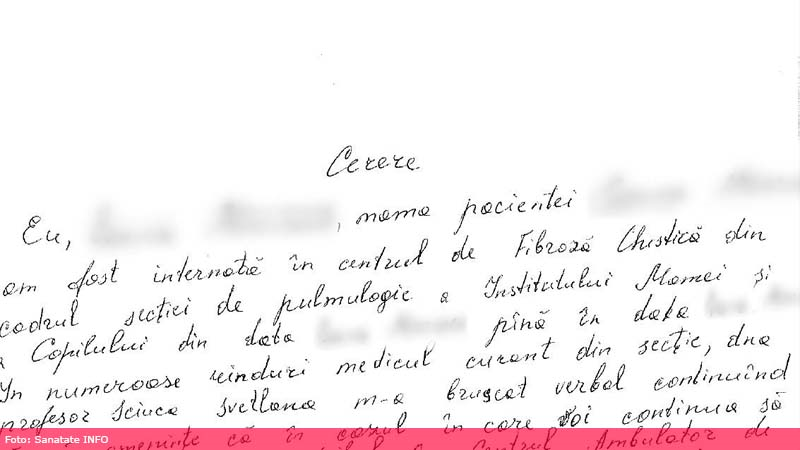 Cerere
Eu, , mama pacientei
am fost internată în centrul de Fibroză Chistică din
cadrul secției de pulmulogie a Institutului Mamei și
a Copilului din data pînă în data
În numeroase rînduri medicul curant din secție, dna
profesor Sciuca Svetlana m-a bruscat verbal continuînd
să amenințe că în cazul în care voi continua să
Centrul Ambulator de
Foto: Sanatate INFO